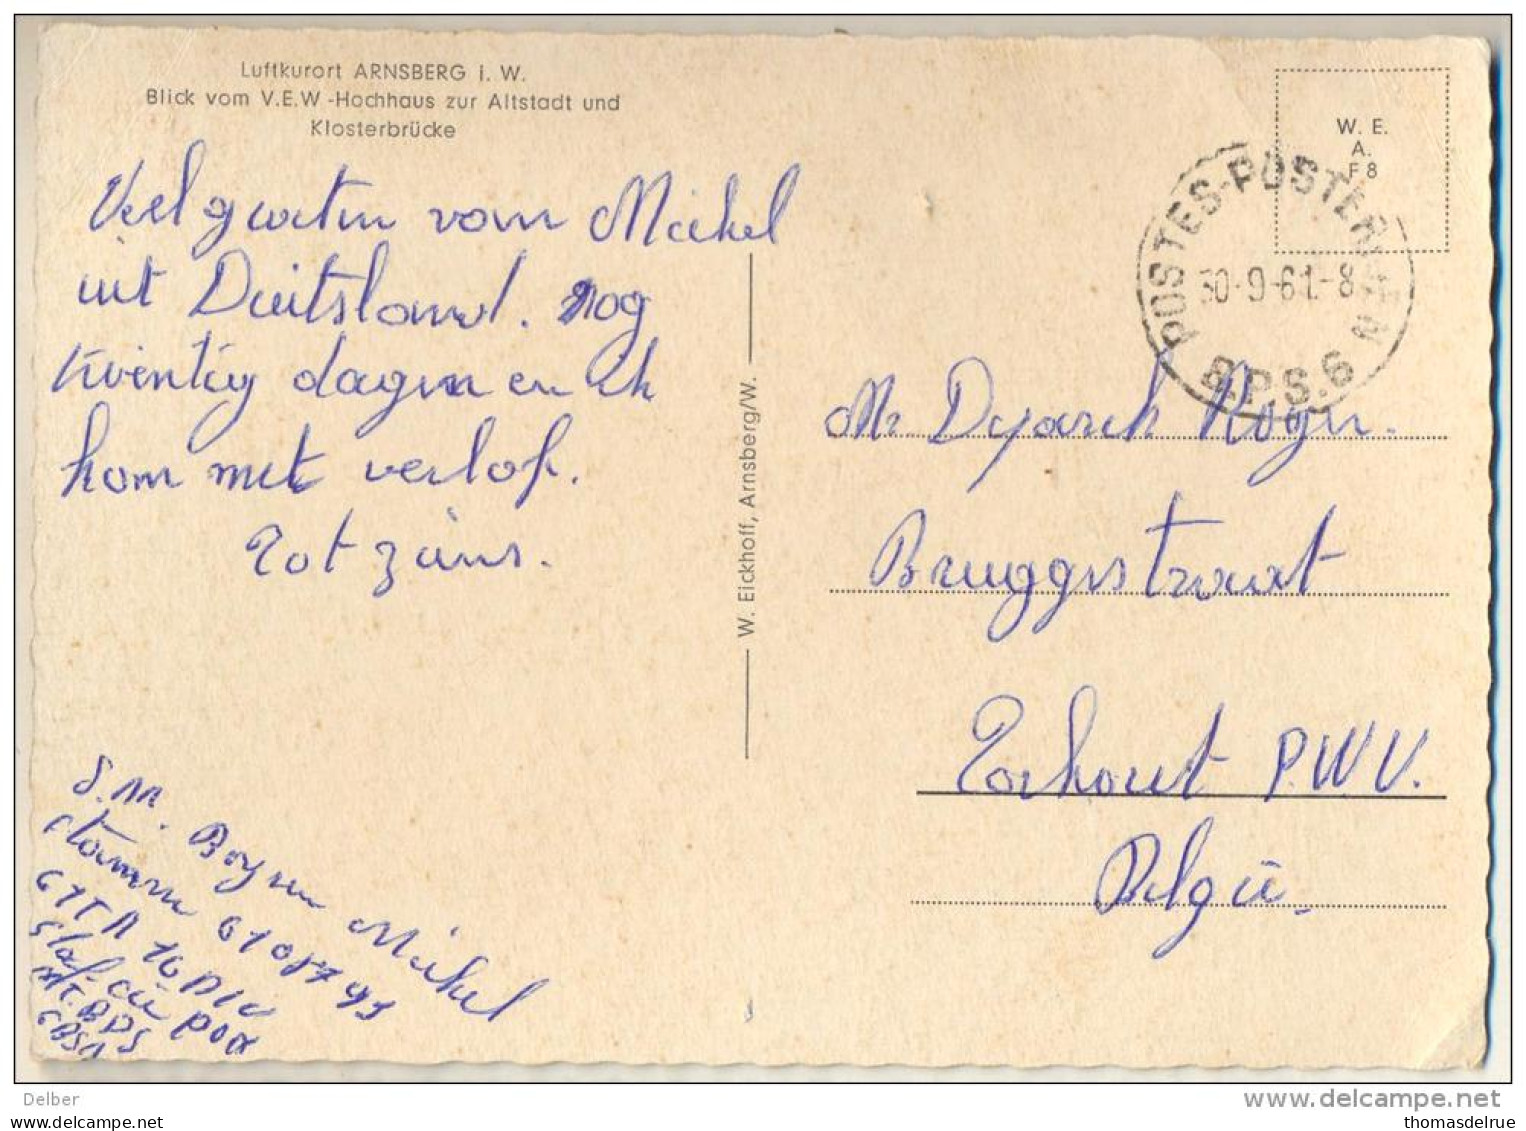 Luftkurort ARNSBERG i. W.
Blick vom V.E.W-Hochhaus zur Altstadt und
Klosterbrücke
Veel groeten van Michel
uit Duitsland. nog
twentig dagen en ik
kom met verlof.
Tot ziens.
S.M. Boyen Michel
stamm 6108793
61TA 16 Div
Staf-cie
B.P.S 6
W. Eickhoff, Arnsberg/W.
W. E.
A.
F 8
POSTES-POSTERIJEN
30-9-61-8
B.P.S.6
Mr Dejarck Roger.
Bruggestraat
Torhout P.W.V.
België.
Delber
delcampe.net
myrky.com
thomasdelrue